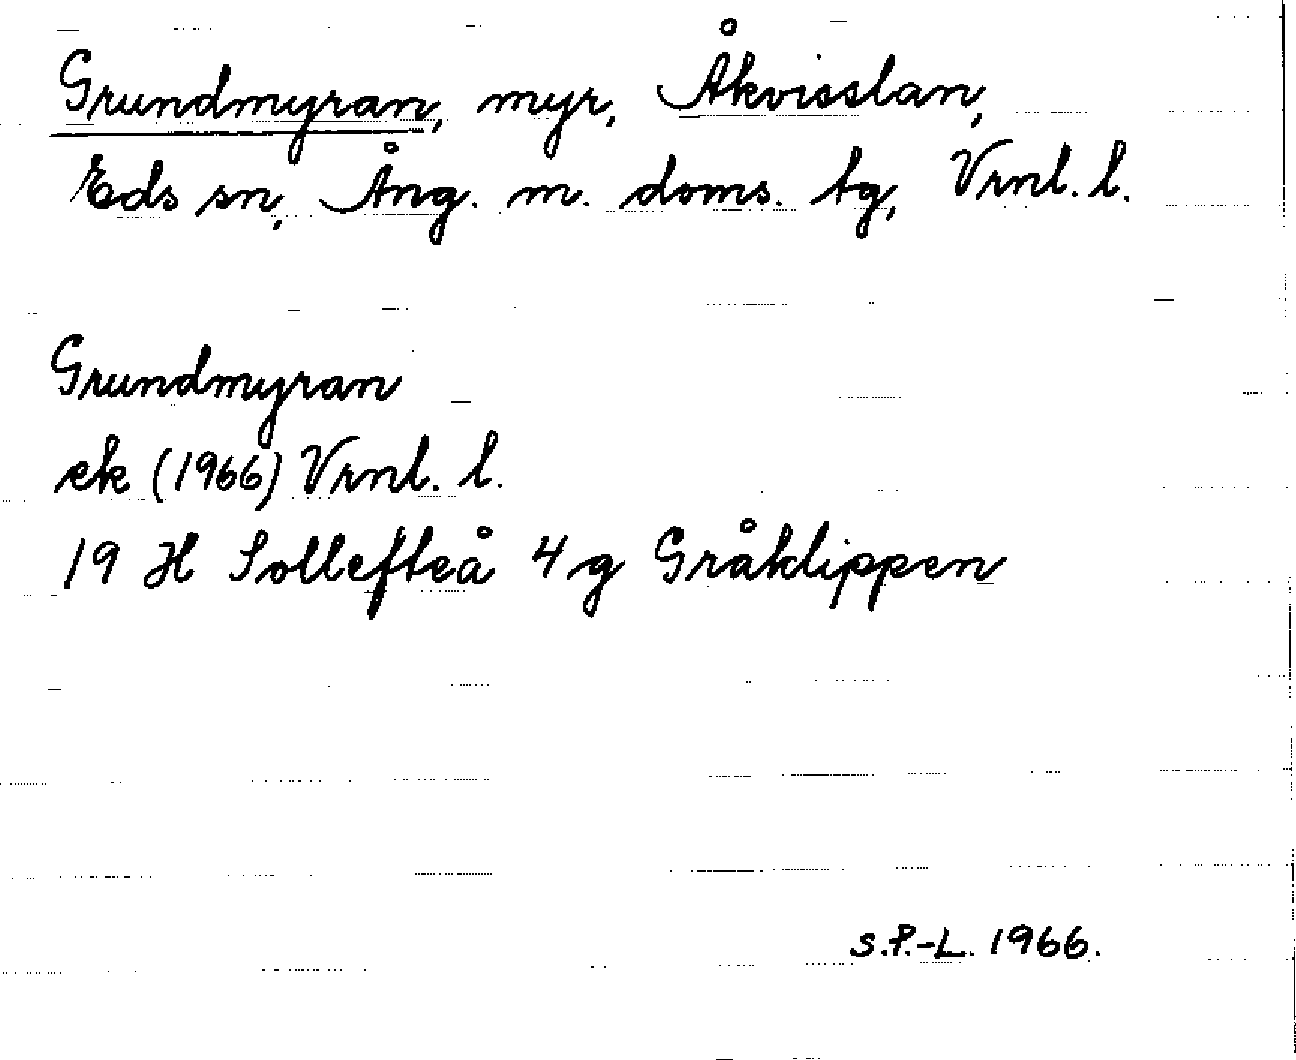 Grundmyran, myr, Åkvisslan,
Eds sn, Ång. m. doms. tg, Vrnl. l.
Grundmyran
ek (1966) Vrnl. l.
19 H Sollefteå 4 g Gråklippen
S.P.-L. 1966.